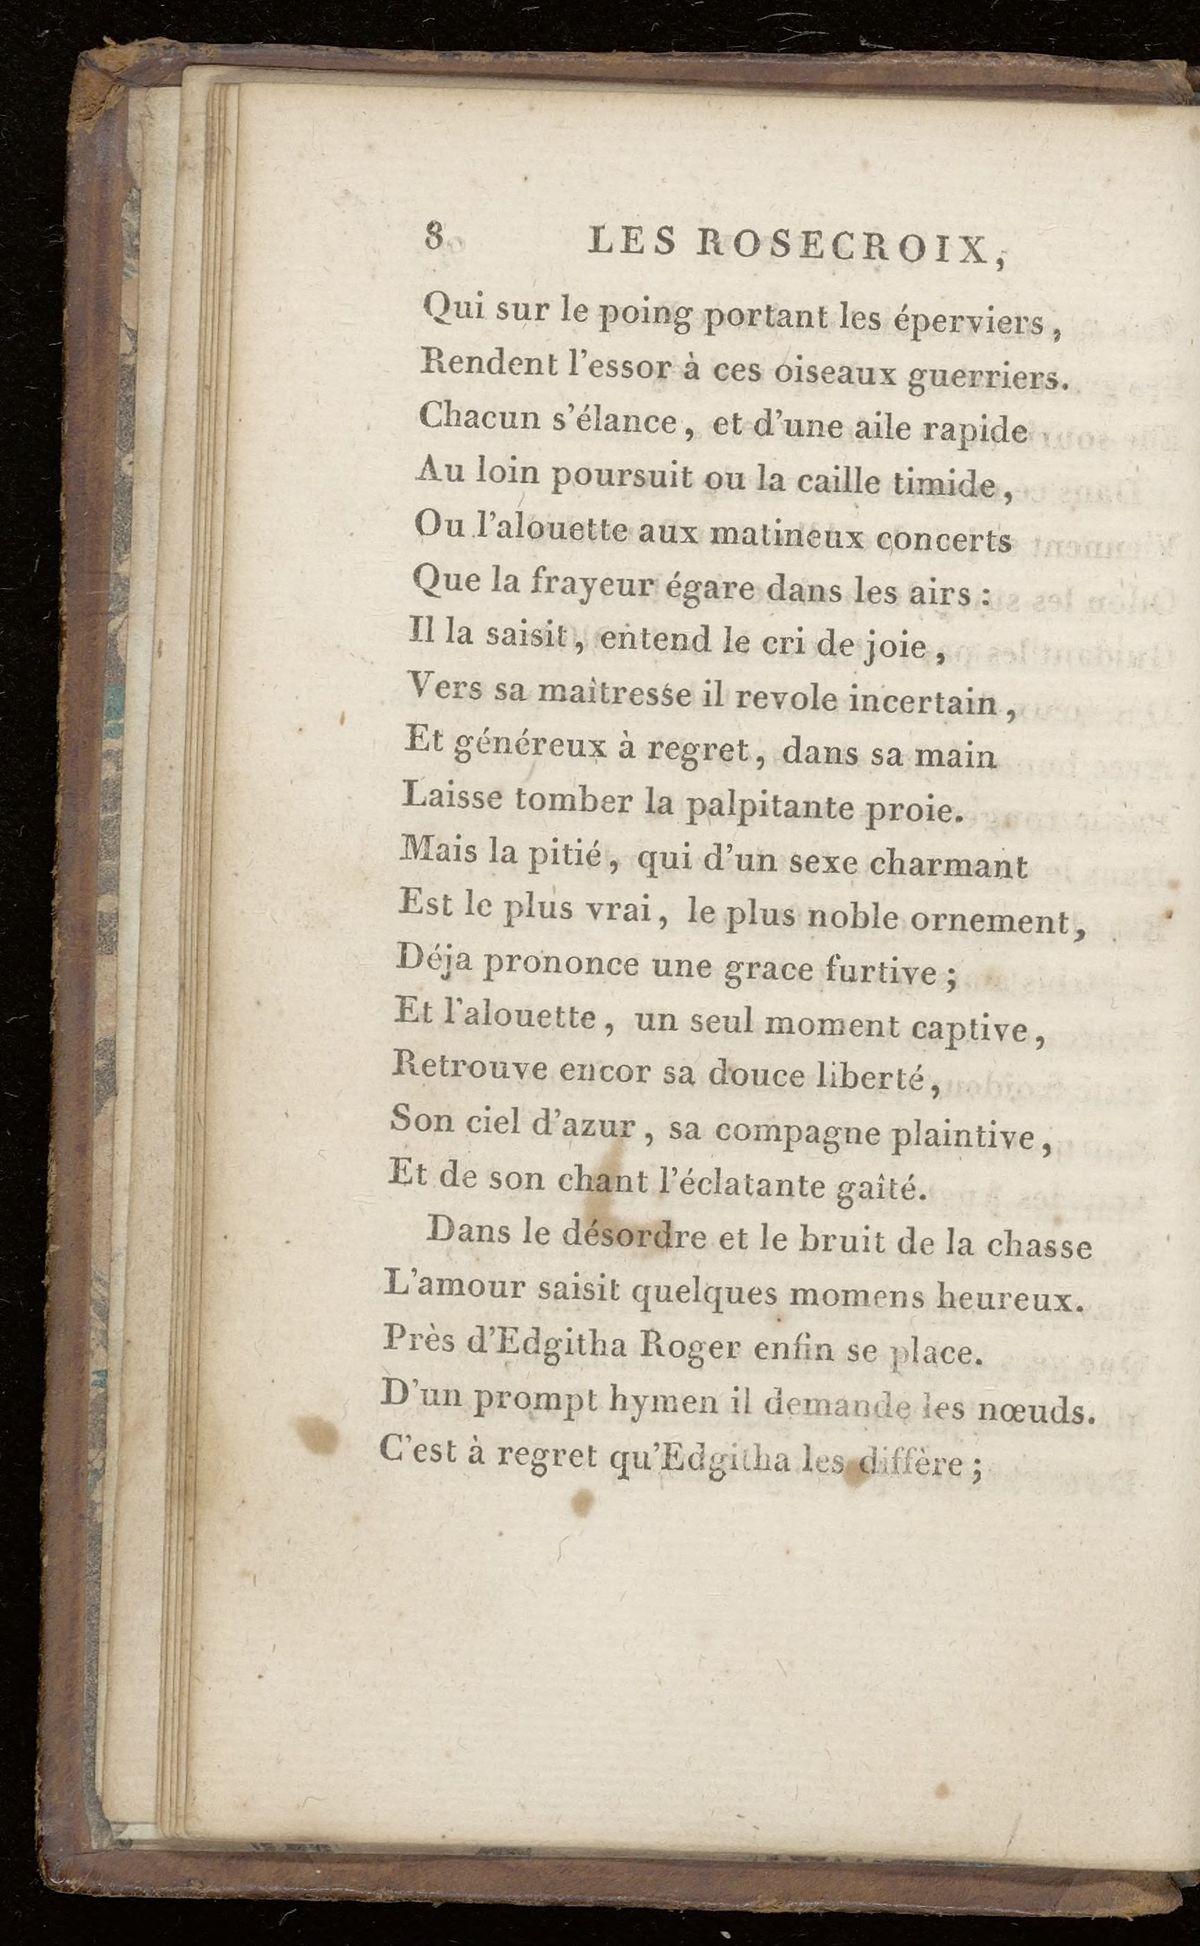 8 LES ROSECROIX,
Qui sur le poing portant les éperviers,
Rendent l'essor à ces oiseaux guerriers.
Chacun s'élance, et d'une aile rapide
Au loin poursuit ou la caille timide,
Ou l'alouette aux matineux concerts
Que la frayeur égare dans les airs :
Il la saisit, entend le cri de joie,
Vers sa maîtresse il revole incertain,
Et généreux à regret, dans sa main
Laisse tomber la palpitante proie.
Mais la pitié, qui d'un sexe charmant
Est le plus vrai, le plus noble ornement,
Déja prononce une grace furtive ;
Et l'alouette, un seul moment captive,
Retrouve encor sa douce liberté,
Son ciel d'azur, sa compagne plaintive,
Et de son chant l'éclatante gaîté.
Dans le désordre et le bruit de la chasse
L'amour saisit quelques momens heureux.
Près d'Edgitha Roger enfin se place.
D'un prompt hymen il demande les nœuds.
C'est à regret qu'Edgitha les diffère ;